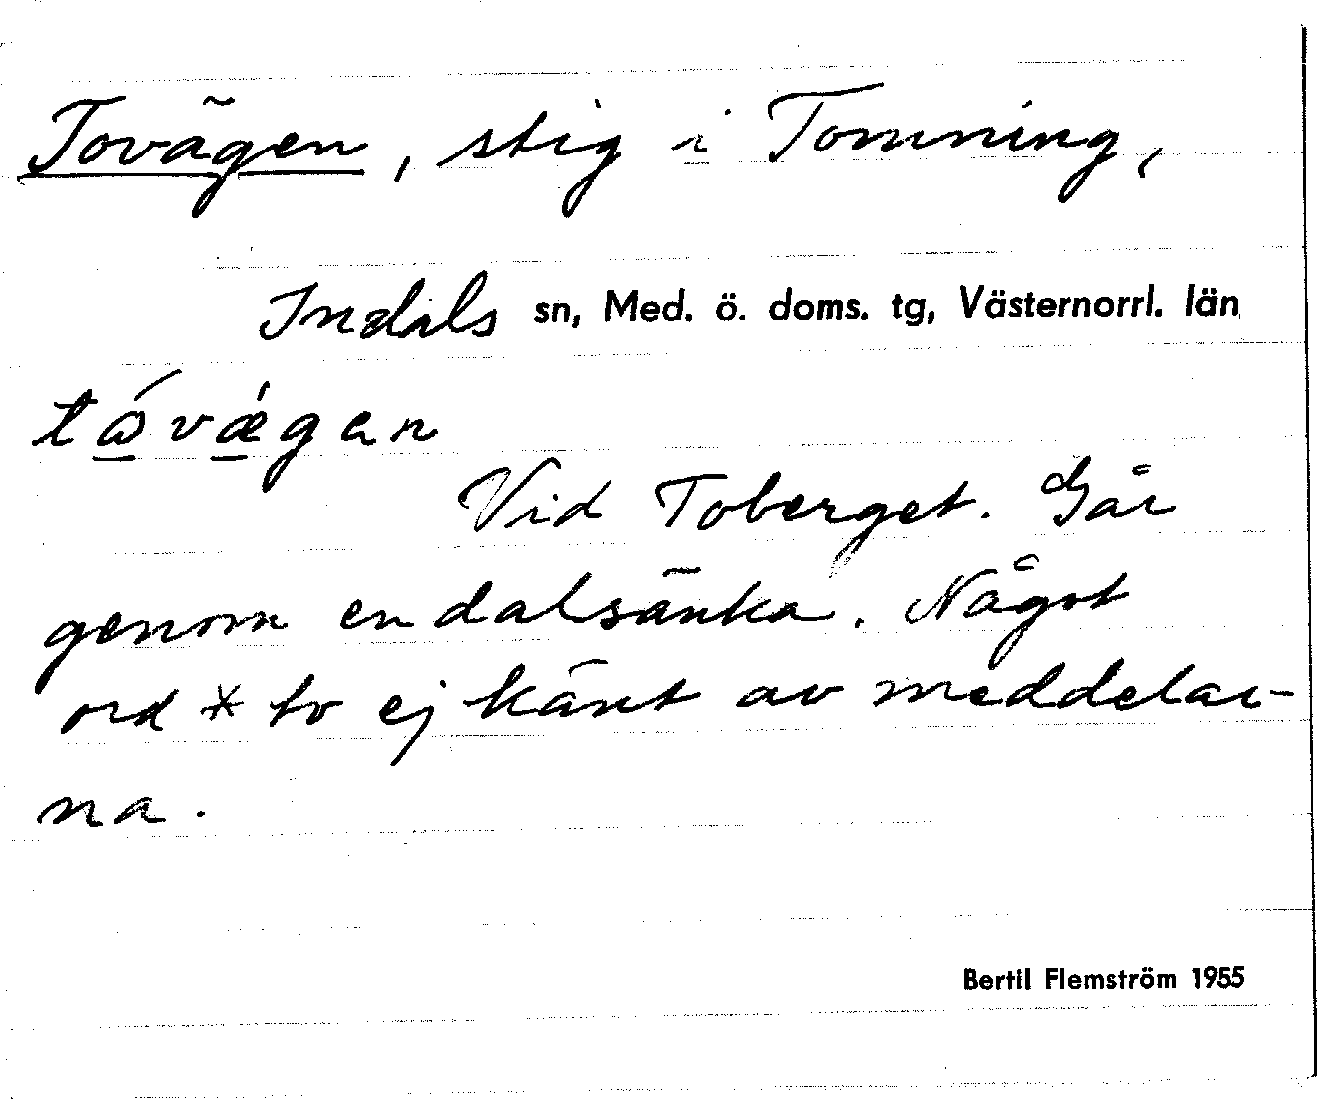 Tovägen, stig i Tomming,
Indals sn, Med. ö. doms. tg, Västernorrl. län
tώvǽgan
Vid Toberget. Går
genom en dalsänka. Något
ord * to ej känt av meddelar-
na.
Bertil Flemström 1955